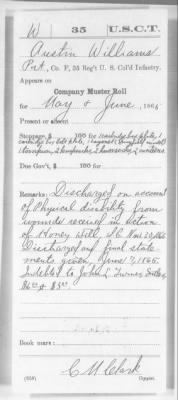 W 35 U.S.C.T.
Austin Williams
Pvt., Co. F, 35 Reg't U. S. Col'd Infantry.
Appears on
Company Muster Roll
for May & June, 1865
Present or absent
Stoppage, $ 100 for
Due Gov't, $ 100 for
Remarks: Discharged on account
of Physical disability from
wounds received in action
of Honey Hill, S.C. Nov 30, 1864
Discharged and final state
ments given June 7, 1865.
Indebted to John Turner Sutler
Book mark:
C M Clark
(358) Copyist.